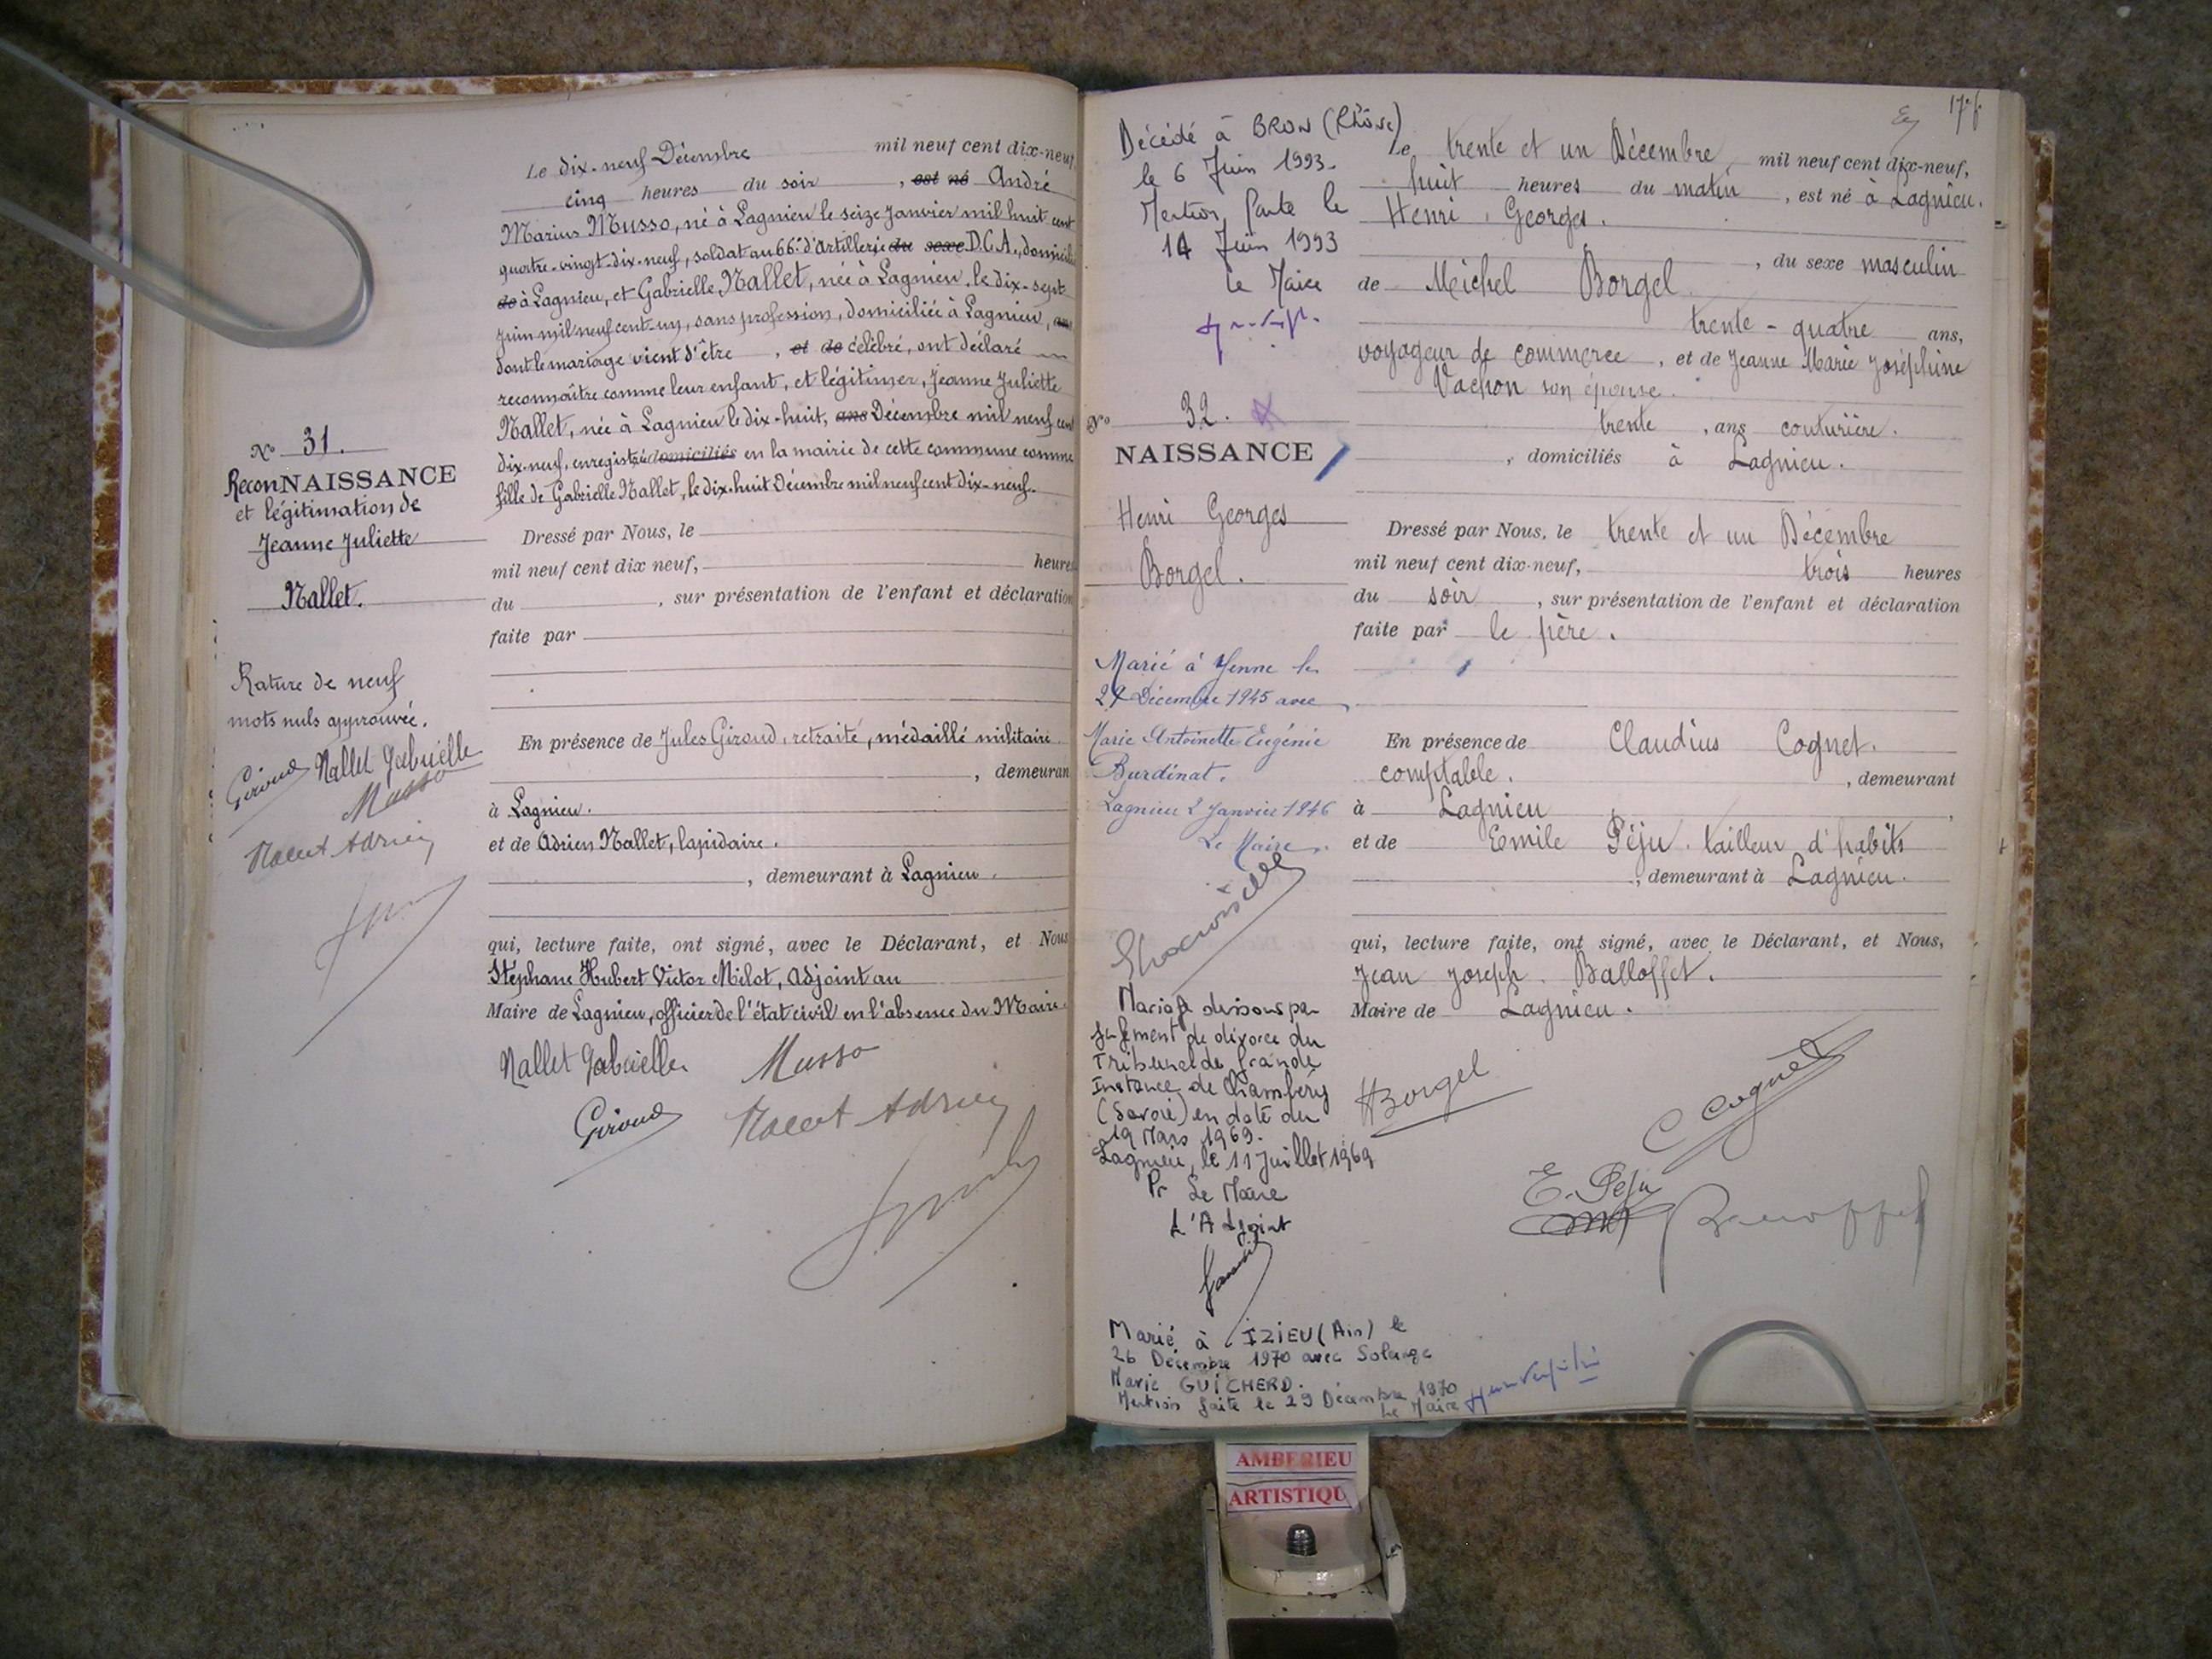 Le dix-neuf Décembre mil neuf cent dix-neuf,
cinq heures du soir, est né André
Marius Musso, né à Lagnieu le seize Janvier mil huit cent
quatre-vingt-dix-neuf, soldat au 66e d'Artillerie du sexe D.C.A., domicilié
de à Lagnieu, et Gabrielle Nallet, née à Lagnieu, le dix-sept
Juin mil neuf cent-un, sans profession, domiciliée à Lagnieu, ans
dont le mariage vient d'être, et de célébré, ont déclaré
reconnaître comme leur enfant, et légitimer, Jeanne Juliette
Nallet, née à Lagnieu le dix-huit, ans Décembre mil neuf cent
dix-neuf, enregistrée domiciliés en la mairie de cette commune comme
fille de Gabrielle Nallet, le dix-huit Décembre mil neuf cent dix-neuf.
No 31.
ReconNAISSANCE
et légitimation de
Jeanne Juliette
Nallet.
Dressé par Nous, le
mil neuf cent dix neuf, heures
du , sur présentation de l'enfant et déclaration
faite par
Rature de neuf
mots nuls approuvée.
Giroud Nallet Gabrielle
Musso
Nallet Adrien
En présence de Jules Giroud, retraité, médaillé militaire
, demeurant
à Lagnieu.
et de Adrien Nallet, lapidaire.
, demeurant à Lagnieu.
qui, lecture faite, ont signé, avec le Déclarant, et Nous
Stéphane Hubert Victor Milot, Adjoint au
Maire de Lagnieu, officier de l'état civil en l'absence du Maire.
Nallet Gabrielle Musso
Giroud Nallet Adrien
176
Décédé à BRON (Rhône)
le 6 Juin 1993.
Mention Portée le
14 Juin 1993
Le Maire
Le trente et un Décembre mil neuf cent dix-neuf,
huit heures du matin, est né à Lagnieu.
Henri Georges.
, du sexe masculin
de Michel Borgel
trente-quatre ans,
voyageur de commerce, et de Jeanne Marie Joséphine
Vachon son épouse.
trente, ans couturière.
, domiciliés à Lagnieu.
No 32.
NAISSANCE
Henri Georges
Borgel.
Dressé par Nous, le trente et un Décembre
mil neuf cent dix-neuf, trois heures
du soir, sur présentation de l'enfant et déclaration
faite par le père.
Marié à Yenne le
29 Décembre 1945 avec
Marie Antoinette Eugénie
Burdinat.
Lagnieu 2 Janvier 1946
Le Maire
En présence de Claudius Cognet.
comptable. , demeurant
à Lagnieu,
et de Emile Péju. tailleur d'habits
, demeurant à Lagnieu.
qui, lecture faite, ont signé, avec le Déclarant, et Nous,
Jean Joseph Balloffet.
Maire de Lagnieu.
Mariage dissous par
jugement de divorce du
Tribunal de Grande
Instance de Chambéry
(Savoie) en date du
19 Mars 1969.
Lagnieu, le 11 Juillet 1969
Pr Le Maire
L'Adjoint
Borgel
C Cognet
E. Péju
Balloffet
Marié à IZIEU (Ain) le
26 Décembre 1970 avec Solange
Marie GUICHERD.
Mention faite le 29 Décembre 1970
Le Maire
AMBERIEU
ARTISTIQU